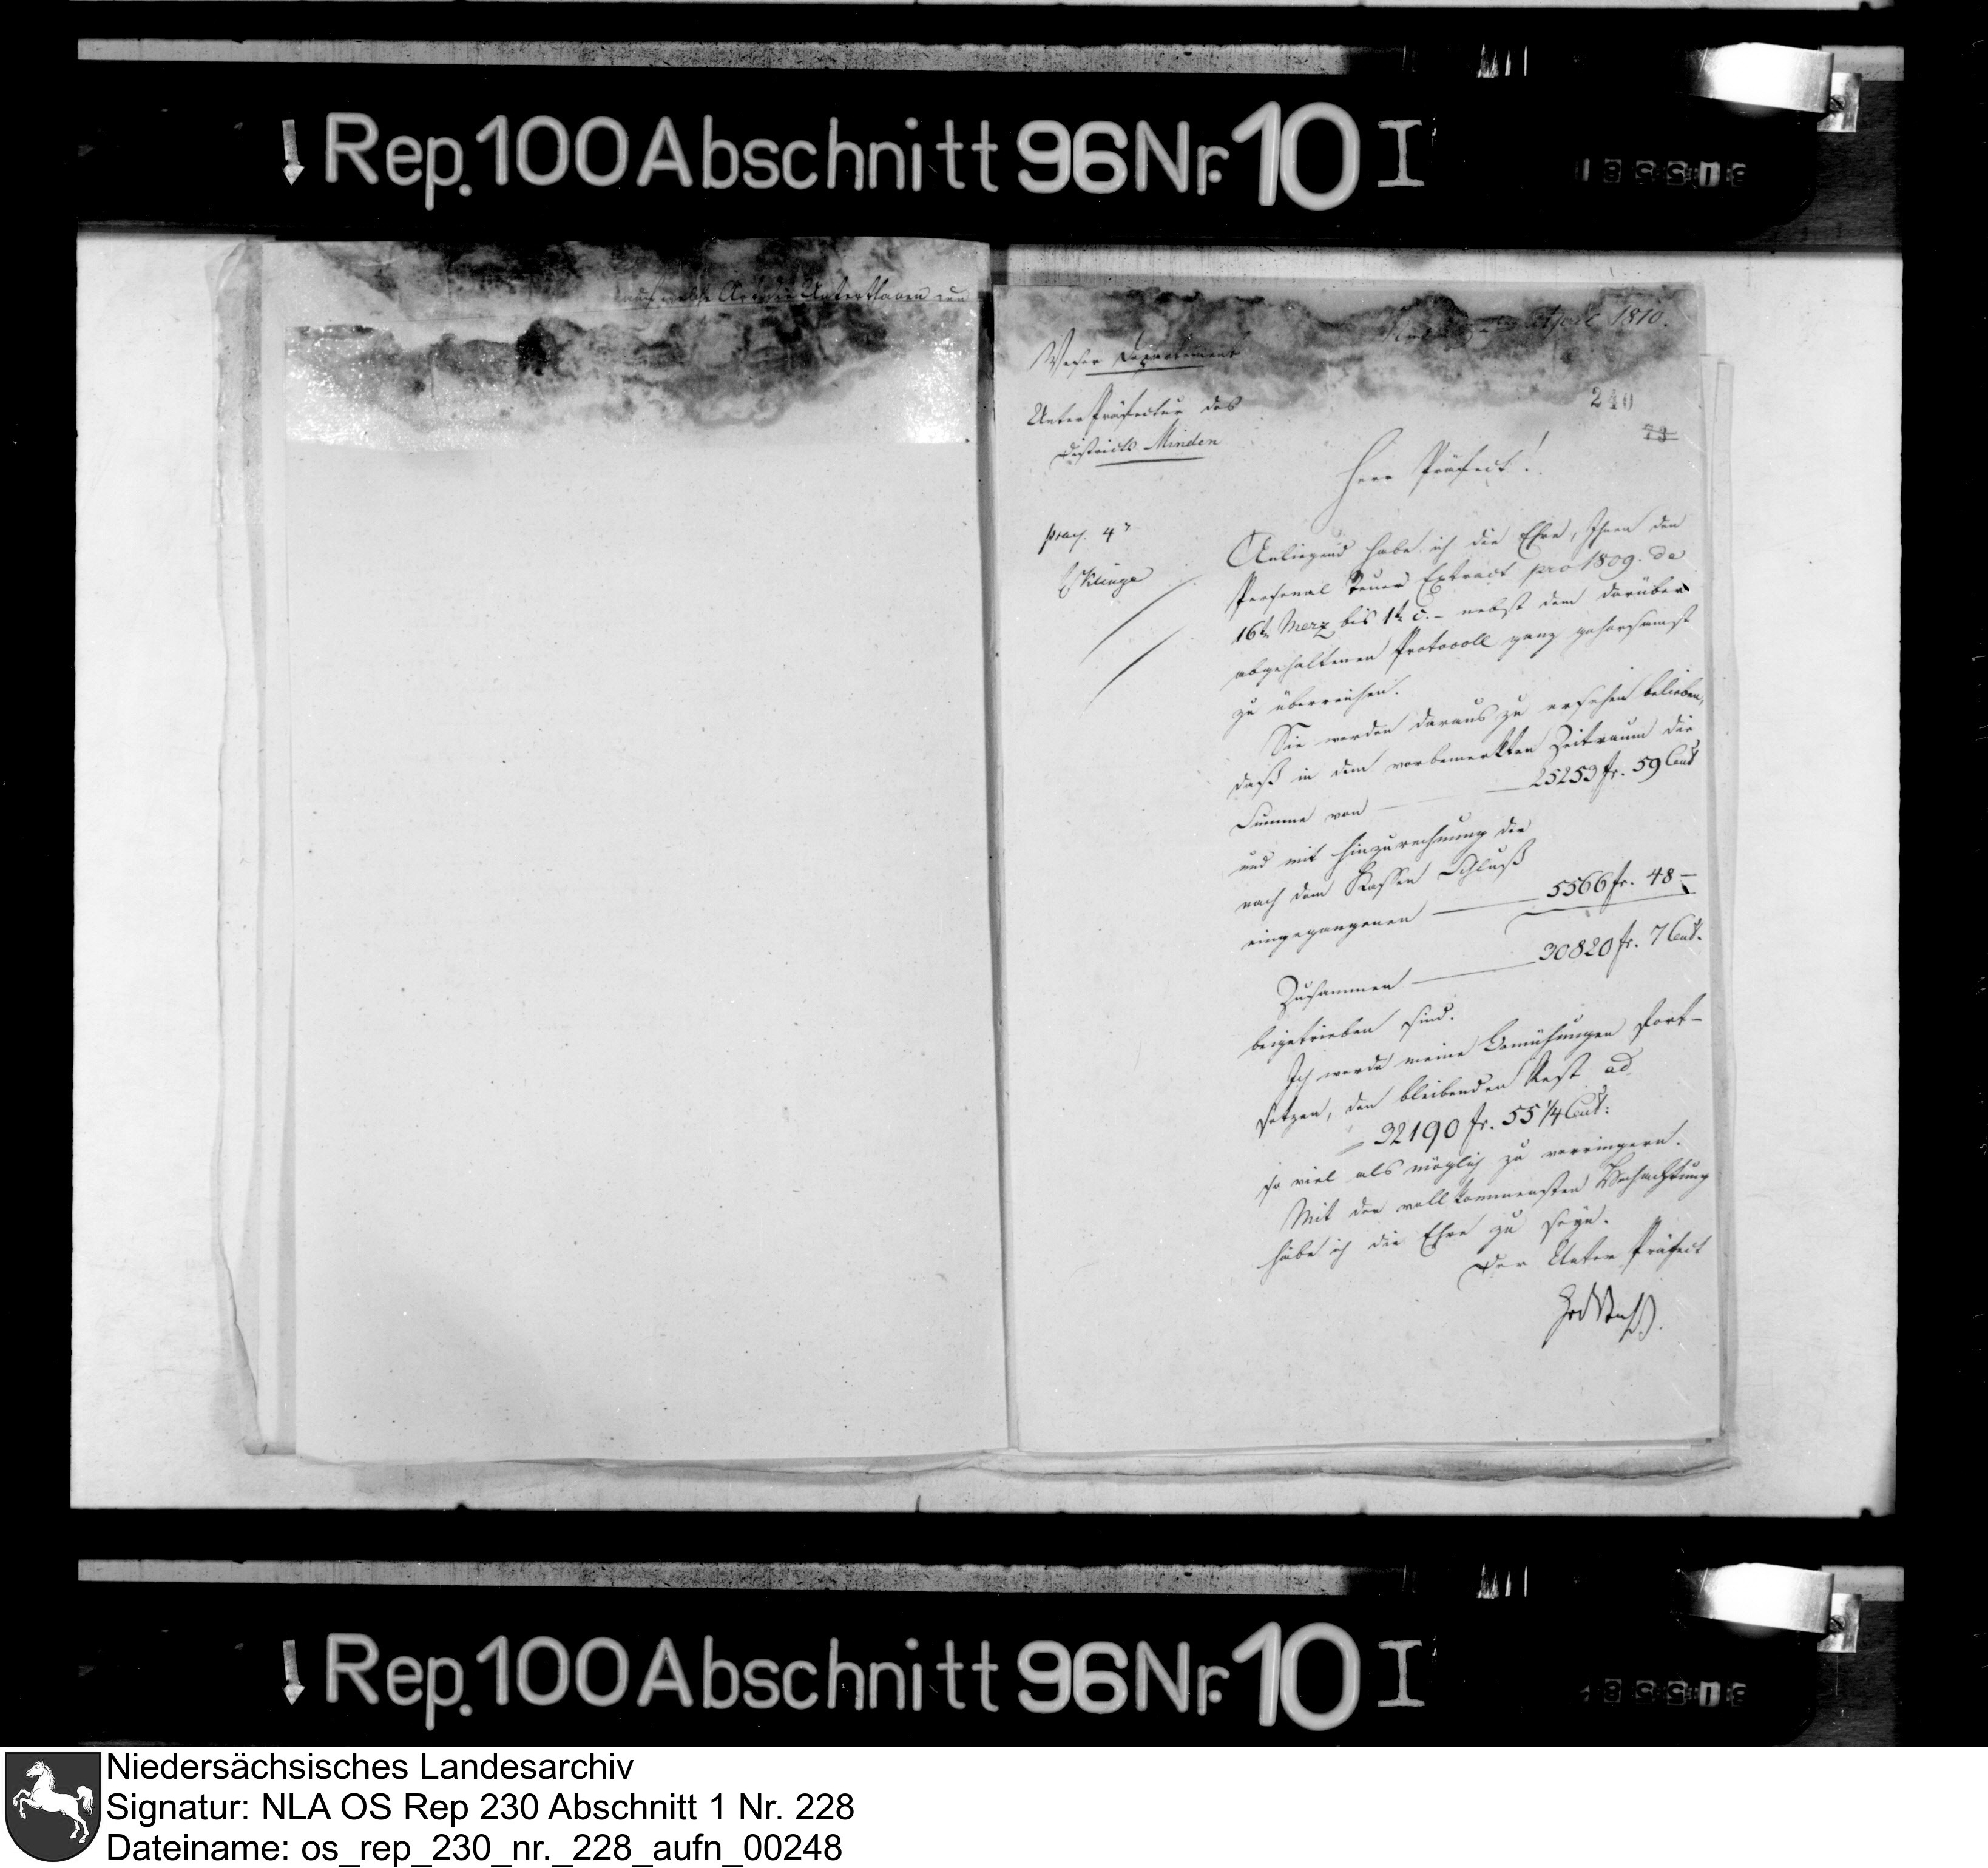 Rep. 100 Abschnitt 96 Nr. 10 I
auf welche Art die Unterthanen
April 1810.
Weser Departement
240
Unter Präfectur des
Districts Minden
73
Herr Präfect!
praes. 4
Anliegend habe ich die Ehre, Ihnen den
Personal Steuer Extract pro 1809. de
16t Merz bis 1t c. – nebst dem darüber
abgehaltenen Protocoll ganz gehorsamst
zu überreichen.
Sie werden daraus zu ersehen belieben,
daß in dem vorbemerkten Zeitraum die
Summe von — 25253 fr. 59 Cent
und mit Hinzurechnung der
nach dem Kassen Schluß
eingegangenen — 5566 fr. 48 –
Zusammen — 30820 fr. 7 Cent.
beigetrieben sind.
Ich werde meine Bemühungen fort-
setzen, den bleibenden Rest ad
32190 fr. 55 1/4 Cent:
so viel als möglich zu verringern.
Mit der vollkommensten Hochachtung
habe ich die Ehre zu seyn.
Der Unter Präfect
Rep. 100 Abschnitt 96 Nr. 10 I
Niedersächsisches Landesarchiv
Signatur: NLA OS Rep 230 Abschnitt 1 Nr. 228
Dateiname: os_rep_230_nr._228_aufn_00248